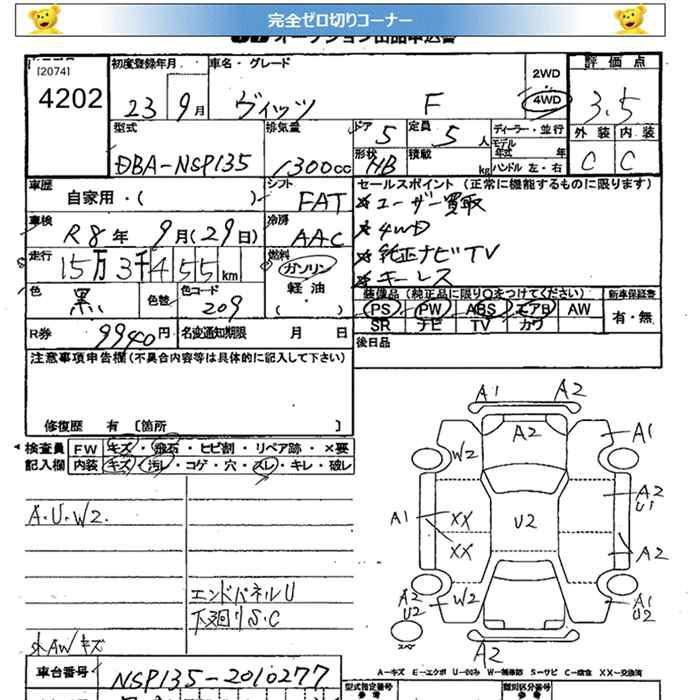 完全ゼロ切りコーナー
オークション出品申込書
[2074]
4202
初度登録年月
車名・グレード
23 9月
ヴィッツ F
2WD
4WD
評価点
3.5
外装 内装
C C
型式
DBA-NSP135
排気量
1300cc
ドア 5
定員 5人
形状 HB
積載 kg
ディーラー・並行
モデル年式 年
ハンドル 左・右
車歴
自家用・( )
シフト
FAT
車検
R8年 9月(29日)
冷房
AAC
走行
15万3千455km
燃料
ガソリン
軽油
( )
色
黒
色替
色コード
209
R券
9940円
名変通知期限 月 日
セールスポイント(正常に機能するものに限ります)
※ユーザー買取
※4WD
※純正ナビTV
※キーレス
装備品(純正品に限り○をつけてください)
PS PW ABS エアB AW
SR ナビ TV カワ
新車保証書
有・無
後日品
注意事項申告欄(不具合内容等は具体的に記入して下さい)
修復歴 有 [箇所 ]
検査員記入欄
FW キズ・飛石・ヒビ割・リペア跡・×要
内装 キズ・汚レ・コゲ・穴・スレ・キレ・破レ
A・U・W2.
エンドパネルU
下廻りS・C
AWキズ
A1 A2
A2
W2
A1
A2
U1
A1
XX
XX
U2
A2
A2
U2
W2
A1
U2
A2
A-キズ E-エクボ U-凹み W-補修跡 S-サビ C-腐食 XX-交換済
車台番号
NSP135-2010277
型式指定番号
類別区分番号
参考
参考